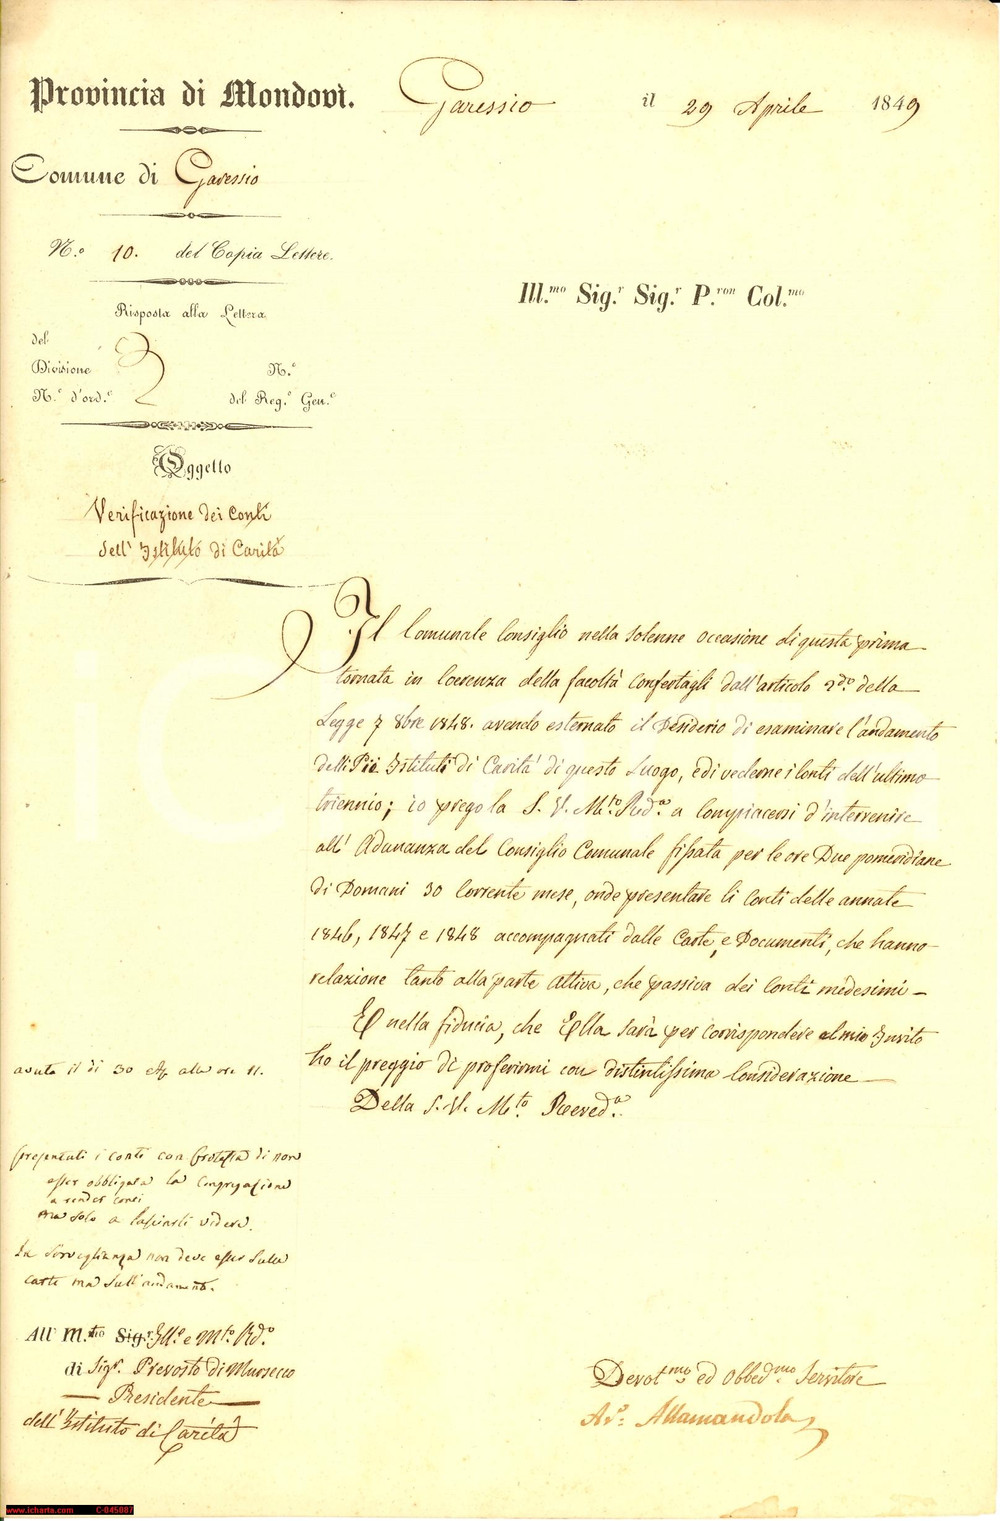 Provincia di Mondovì.
Garessio il 29 Aprile 1849
Comune di Garessio
N.o 10. del Copia Lettere.
Risposta alla Lettera
del
Divisione 2 N.o
N.o d'ord.e del Reg.o Gen.e
Oggetto
Verificazione dei Conti
dell' Istituto di Carità
Ill.mo Sig.r Sig.r P.ron Col.mo
Il Comunale Consiglio nella solenne occasione di questa prima
tornata in coerenza della facoltà confertagli dall'articolo 2do. della
Legge 7 8bre 1848. avendo esternato il desiderio di esaminare l'andamento
delli Pii Istituti di Carità di questo Luogo, e di vederne i Conti dell'ultimo
triennio; io prego la S. V. M.to Red.a a compiacersi d'intervenire
all' Adunanza del Consiglio Comunale fissata per le ore Due pomeridiane
di Domani 30 corrente mese, onde presentare li Conti delle annate
1846, 1847 e 1848 accompagnati dalle Carte, e Documenti, che hanno
relazione tanto alla parte attiva, che passiva dei Conti medesimi -
E nella fiducia, che Ella sarà per corrispondere al mio Invito
ho il preggio di proferirmi con distintissima Considerazione
Della S. V. M.to Reved.a
avuta il di 30 alle ore 11.
presentati i conti con protesta di non
esser obbligata la Congregazione
a render conti
ma solo a lasciarli videre.
La sorveglianza non deve esser sulle
carte ma sull'andamento.
All' M.to Sig.r Ill.e e M.to Rd.o
di Sigr. Prevosto di Mursecco
Presidente
dell'Istituto di Carità
Devot.mo ed Obbed.mo Servitore
Av.o Allamandola
www.icharta.com C-045087